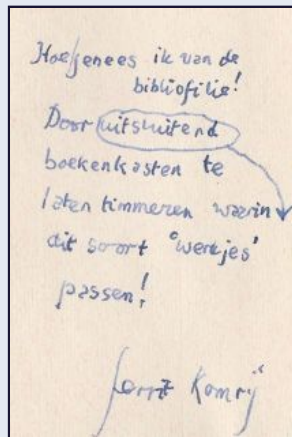 Hoe genees ik van de
bibliofilie!
Door uitsluitend
boekenkasten te
laten timmeren waarin
dit soort 'werkjes'
passen!
Gerrit Komrij